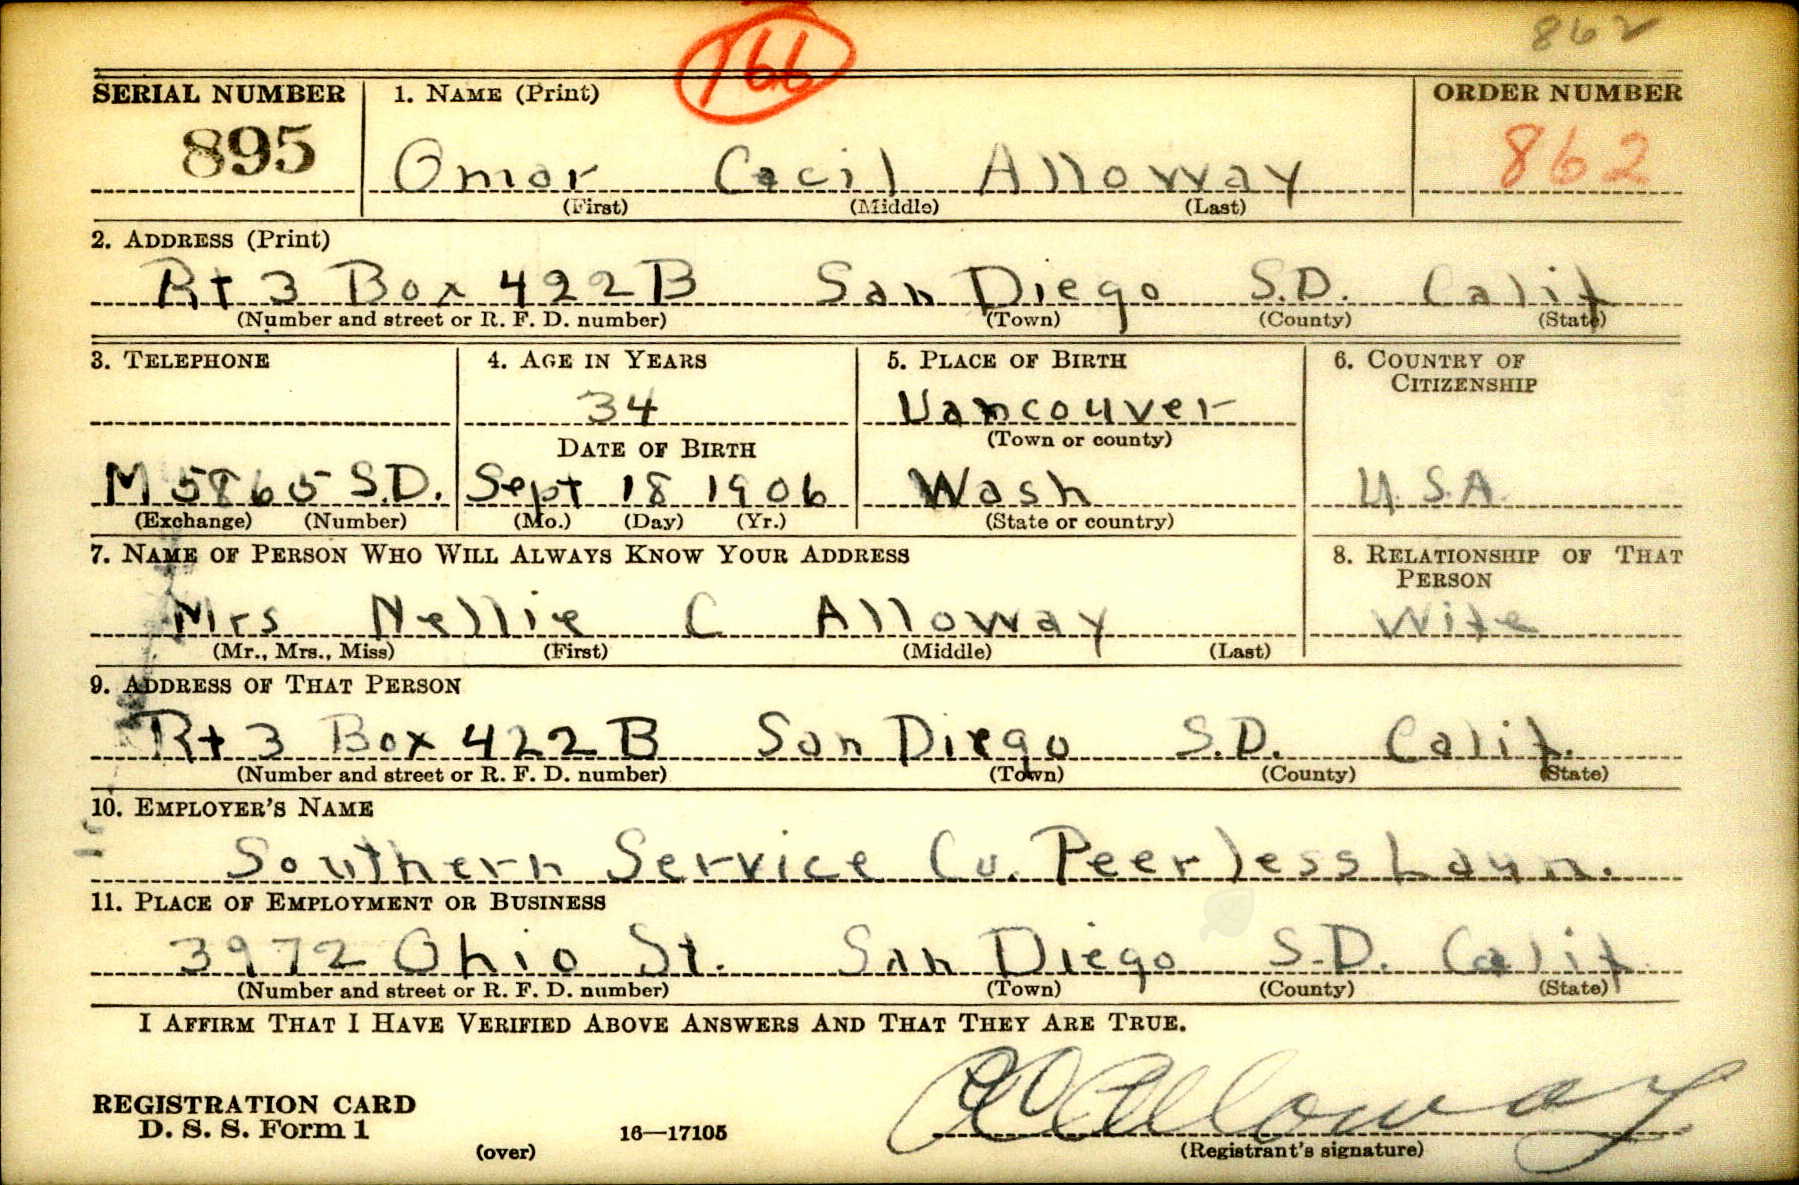 862
166
SERIAL NUMBER 1. NAME (Print) ORDER NUMBER
895 Omar Cecil Alloway 862
(First) (Middle) (Last)
2. ADDRESS (Print)
Rt 3 Box 422B San Diego S.D. Calif
(Number and street or R. F. D. number) (Town) (County) (State)
3. TELEPHONE 4. AGE IN YEARS 5. PLACE OF BIRTH 6. COUNTRY OF
CITIZENSHIP
34 Vancouver
DATE OF BIRTH (Town or county)
M 5865 S.D. Sept 18 1906 Wash U.S.A.
(Exchange) (Number) (Mo.) (Day) (Yr.) (State or country)
7. NAME OF PERSON WHO WILL ALWAYS KNOW YOUR ADDRESS 8. RELATIONSHIP OF THAT
PERSON
Mrs Nellie C Alloway Wife
(Mr., Mrs., Miss) (First) (Middle) (Last)
9. ADDRESS OF THAT PERSON
Rt 3 Box 422B San Diego S.D. Calif.
(Number and street or R. F. D. number) (Town) (County) (State)
10. EMPLOYER'S NAME
Southern Service Co. Peerless Laun.
11. PLACE OF EMPLOYMENT OR BUSINESS
3972 Ohio St. San Diego S.D. Calif
(Number and street or R. F. D. number) (Town) (County) (State)
I AFFIRM THAT I HAVE VERIFIED ABOVE ANSWERS AND THAT THEY ARE TRUE.
OC Alloway
REGISTRATION CARD
D. S. S. Form 1 16—17105
(over) (Registrant's signature)